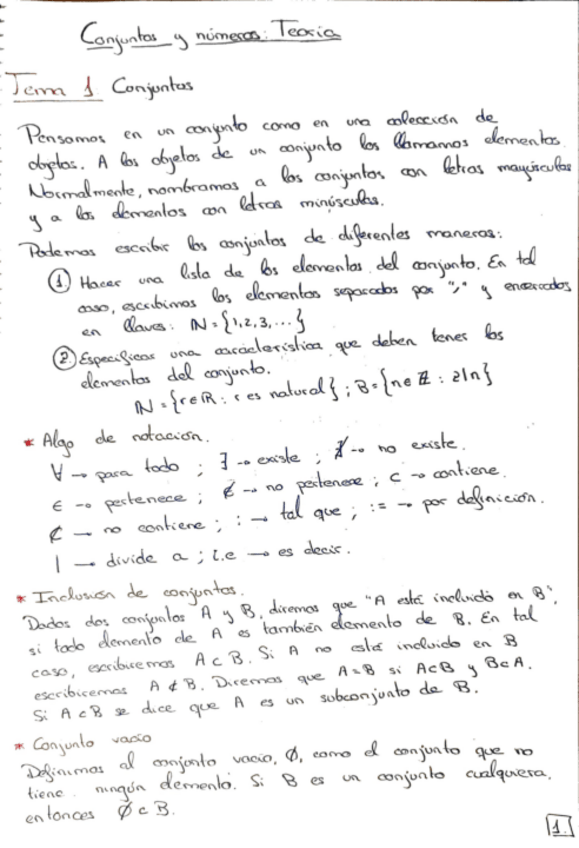 Conjuntos y números: Teoría
Tema 1 Conjuntos
Pensamos en un conjunto como en una colección de
objetos. A los objetos de un conjunto los llamamos elementos.
Normalmente, nombramos a los conjuntos con letras mayúsculas
y a los elementos con letras minúsculas.
Podemos escribir los conjuntos de diferentes maneras:
① Hacer una lista de los elementos del conjunto. En tal
caso, escribimos los elementos separados por "," y encerrados
en llaves: ℕ = {1,2,3,...}
② Especificar una característica que deben tener los
elementos del conjunto.
ℕ = {r∈ℝ : r es natural} ; B = {n∈ℤ : 2|n}
* Algo de notación.
∀ → para todo ; ∃ → existe ; ∄ → no existe.
∈ → pertenece ; ∉ → no pertenece ; ⊂ → contiene.
⊄ → no contiene ; : → tal que ; := → por definición.
| → divide a ; i.e → es decir.
* Inclusión de conjuntos.
Dados dos conjuntos A y B, diremos que "A está incluido en B",
si todo elemento de A es también elemento de B. En tal
caso, escribiremos A⊂B. Si A no está incluido en B
escribiremos A⊄B. Diremos que A=B si A⊂B y B⊂A.
Si A⊂B se dice que A es un subconjunto de B.
* Conjunto vacío
Definimos al conjunto vacío, ∅, como el conjunto que no
tiene ningún elemento. Si B es un conjunto cualquiera,
entonces ∅⊂B.
1.